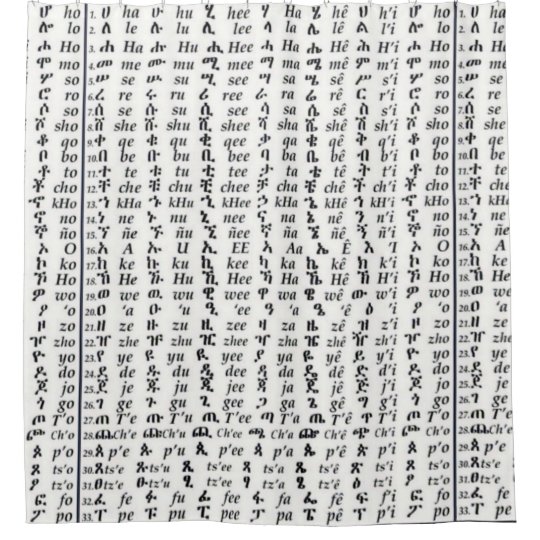 ሆ ho 1. ሀ ha ሁ hu ሂ hee ሃ Ha ሄ hê ህ h'i ሆ ho 1. ሀ ha
ሎ lo 2. ለ le ሉ lu ሊ lee ላ la ሌ lê ል l'i ሎ lo 2. ለ le
ሖ Ho 3. ሐ Ha ሑ Hu ሒ Hee ሓ Ha ሔ Hê ሕ H'i ሖ Ho 3. ሐ Ha
ሞ mo 4. መ me ሙ mu ሚ mee ማ ma ሜ mê ም m'i ሞ mo 4. መ me
ሦ so 5. ሠ se ሡ su ሢ see ሣ sa ሤ sê ሥ s'i ሦ so 5. ሠ se
ሮ ro 6. ረ re ሩ ru ሪ ree ራ ra ሬ rê ር r'i ሮ ro 6. ረ re
ሶ so 7. ሰ se ሱ su ሲ see ሳ sa ሴ sê ስ s'i ሶ so 7. ሰ se
ሾ sho 8. ሸ she ሹ shu ሺ shee ሻ sha ሼ shê ሽ sh'i ሾ sho 8. ሸ she
ቆ qo 9. ቀ qe ቁ qu ቂ qee ቃ qa ቄ qê ቅ q'i ቆ qo 9. ቀ qe
ቦ bo 10. በ be ቡ bu ቢ bee ባ ba ቤ bê ብ b'i ቦ bo 10. በ be
ቶ to 11. ተ te ቱ tu ቲ tee ታ ta ቴ tê ት t'i ቶ to 11. ተ te
ቾ cho 12. ቸ che ቹ chu ቺ chee ቻ cha ቼ chê ች ch'i ቾ cho 12. ቸ che
ኆ kHo 13. ኀ kHa ኁ kHu ኂ kHee ኃ kHa ኄ kHê ኅ kH'i ኆ kHo 13. ኀ kHa
ኖ no 14. ነ ne ኑ nu ኒ nee ና na ኔ nê ን n'i ኖ no 14. ነ ne
ኞ ño 15. ኘ ñe ኙ ñu ኚ ñee ኛ ña ኜ ñê ኝ ñ'i ኞ ño 15. ኘ ñe
ኦ O 16. አ A ኡ U ኢ EE ኣ Aa ኤ Ê እ 'I ኦ O 16. አ A
ኮ ko 17. ከ ke ኩ ku ኪ kee ካ ka ኬ kê ክ k'i ኮ ko 17. ከ ke
ኾ Ho 18. ኸ He ኹ Hu ኺ Hee ኻ Ha ኼ Hê ኽ H'i ኾ Ho 18. ኸ He
ዎ wo 19. ወ we ዉ wu ዊ wee ዋ wa ዌ wê ው w'i ዎ wo 19. ወ we
ዖ 'o 20. ዐ 'a ዑ 'u ዒ 'ee ዓ 'a ዔ 'ê ዕ 'i ዖ 'o 20. ዐ 'a
ዞ zo 21. ዘ ze ዙ zu ዚ zee ዛ za ዜ zê ዝ z'i ዞ zo 21. ዘ ze
ዦ zho 22. ዠ zhe ዡ zhu ዢ zhee ዣ zha ዤ zhê ዥ zh'i ዦ zho 22. ዠ zhe
ዮ yo 23. የ ye ዩ yu ዪ yee ያ ya ዬ yê ይ y'i ዮ yo 23. የ ye
ዶ do 24. ደ de ዱ du ዲ dee ዳ da ዴ dê ድ d'i ዶ do 24. ደ de
ጆ jo 25. ጀ je ጁ ju ጂ jee ጃ ja ጄ jê ጅ j'i ጆ jo 25. ጀ je
ጎ go 26. ገ ge ጉ gu ጊ gee ጋ ga ጌ gê ግ g'i ጎ go 26. ገ ge
ጦ T'o 27. ጠ T'e ጡ T'u ጢ T'ee ጣ T'a ጤ T'ê ጥ T'i ጦ T'o 27. ጠ T'e
ጮ Ch'o 28. ጨ Ch'e ጩ Ch'u ጪ Ch'ee ጫ Ch'a ጬ Ch'ê ጭ Ch'i ጮ Ch'o 28. ጨ Ch'e
ጶ p'o 29. ጰ p'e ጱ p'u ጲ p'ee ጳ p'a ጴ p'ê ጵ p'i ጶ p'o 29. ጰ p'e
ጾ ts'o 30. ጸ ts'e ጹ ts'u ጺ ts'ee ጻ ts'a ጼ ts'ê ጽ ts'i ጾ ts'o 30. ጸ ts'e
ፆ tz'o 31. ፀ tz'e ፁ tz'u ፂ tz'ee ፃ tz'a ፄ tz'ê ፅ tz'i ፆ tz'o 31. ፀ tz'e
ፎ fo 32. ፈ fe ፉ fu ፊ fee ፋ fa ፌ fê ፍ f'i ፎ fo 32. ፈ fe
ፖ po 33. ፐ pe ፑ pu ፒ pee ፓ pa ፔ pê ፕ p'i ፖ po 33. ፐ pe